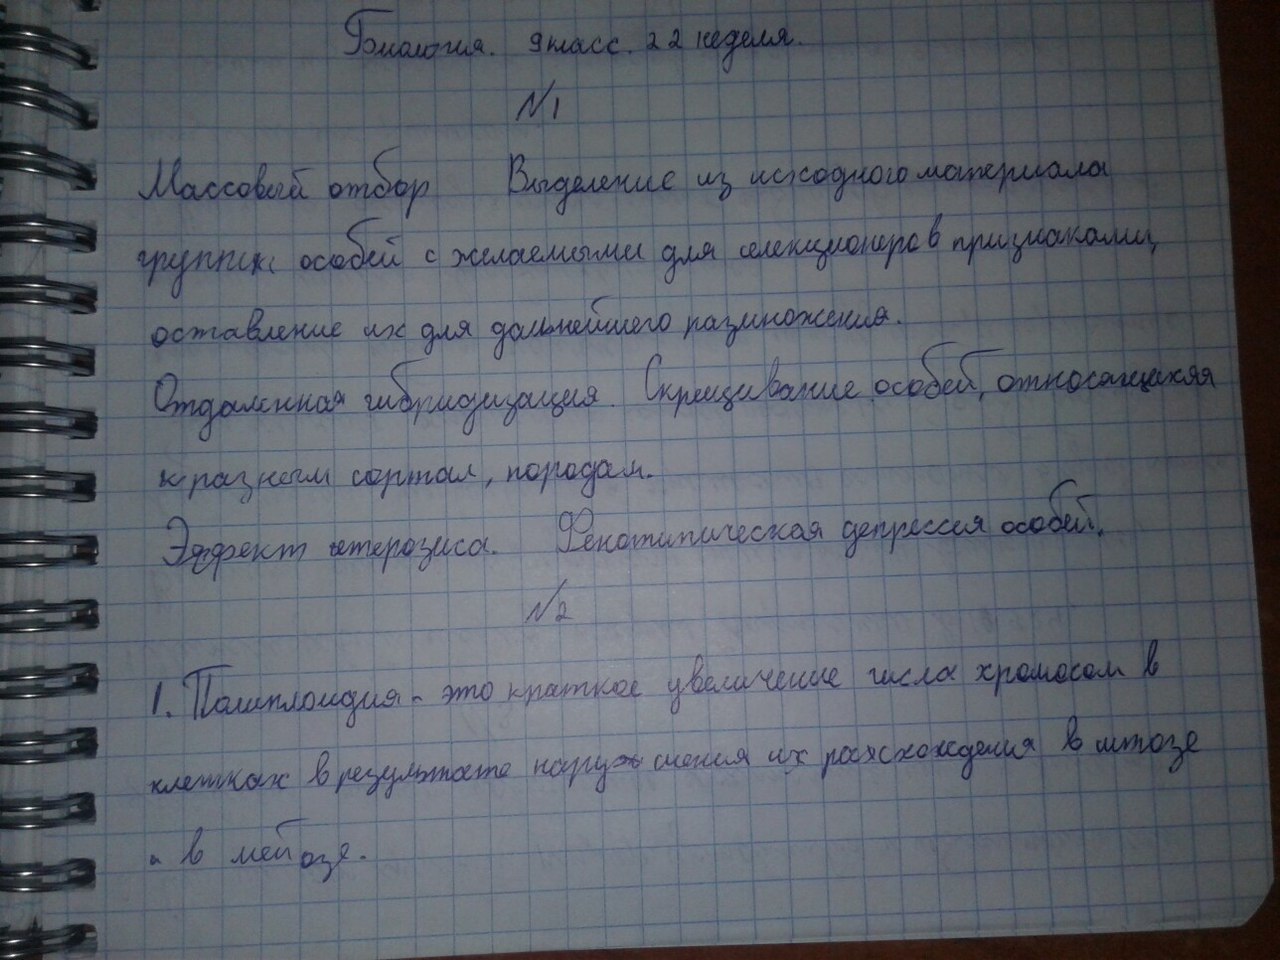 Биология. 9класс. 22 неделя.
№1
Массовый отбор Выделение из исходного материала
группы особей с желаемыми для селекционеров признаками,
оставление их для дальнейшего размножения.
Отдаленная гибридизация. Скрещивание особей, относящихся
к разным сортам, породам.
Эффект гетерозиса. Фенотипическая депрессия особей.
№2
1. Полиплоидия - это краткое увеличение числа хромосом в
клетках в результате нарушения их расхождения в митозе
и в мейозе.